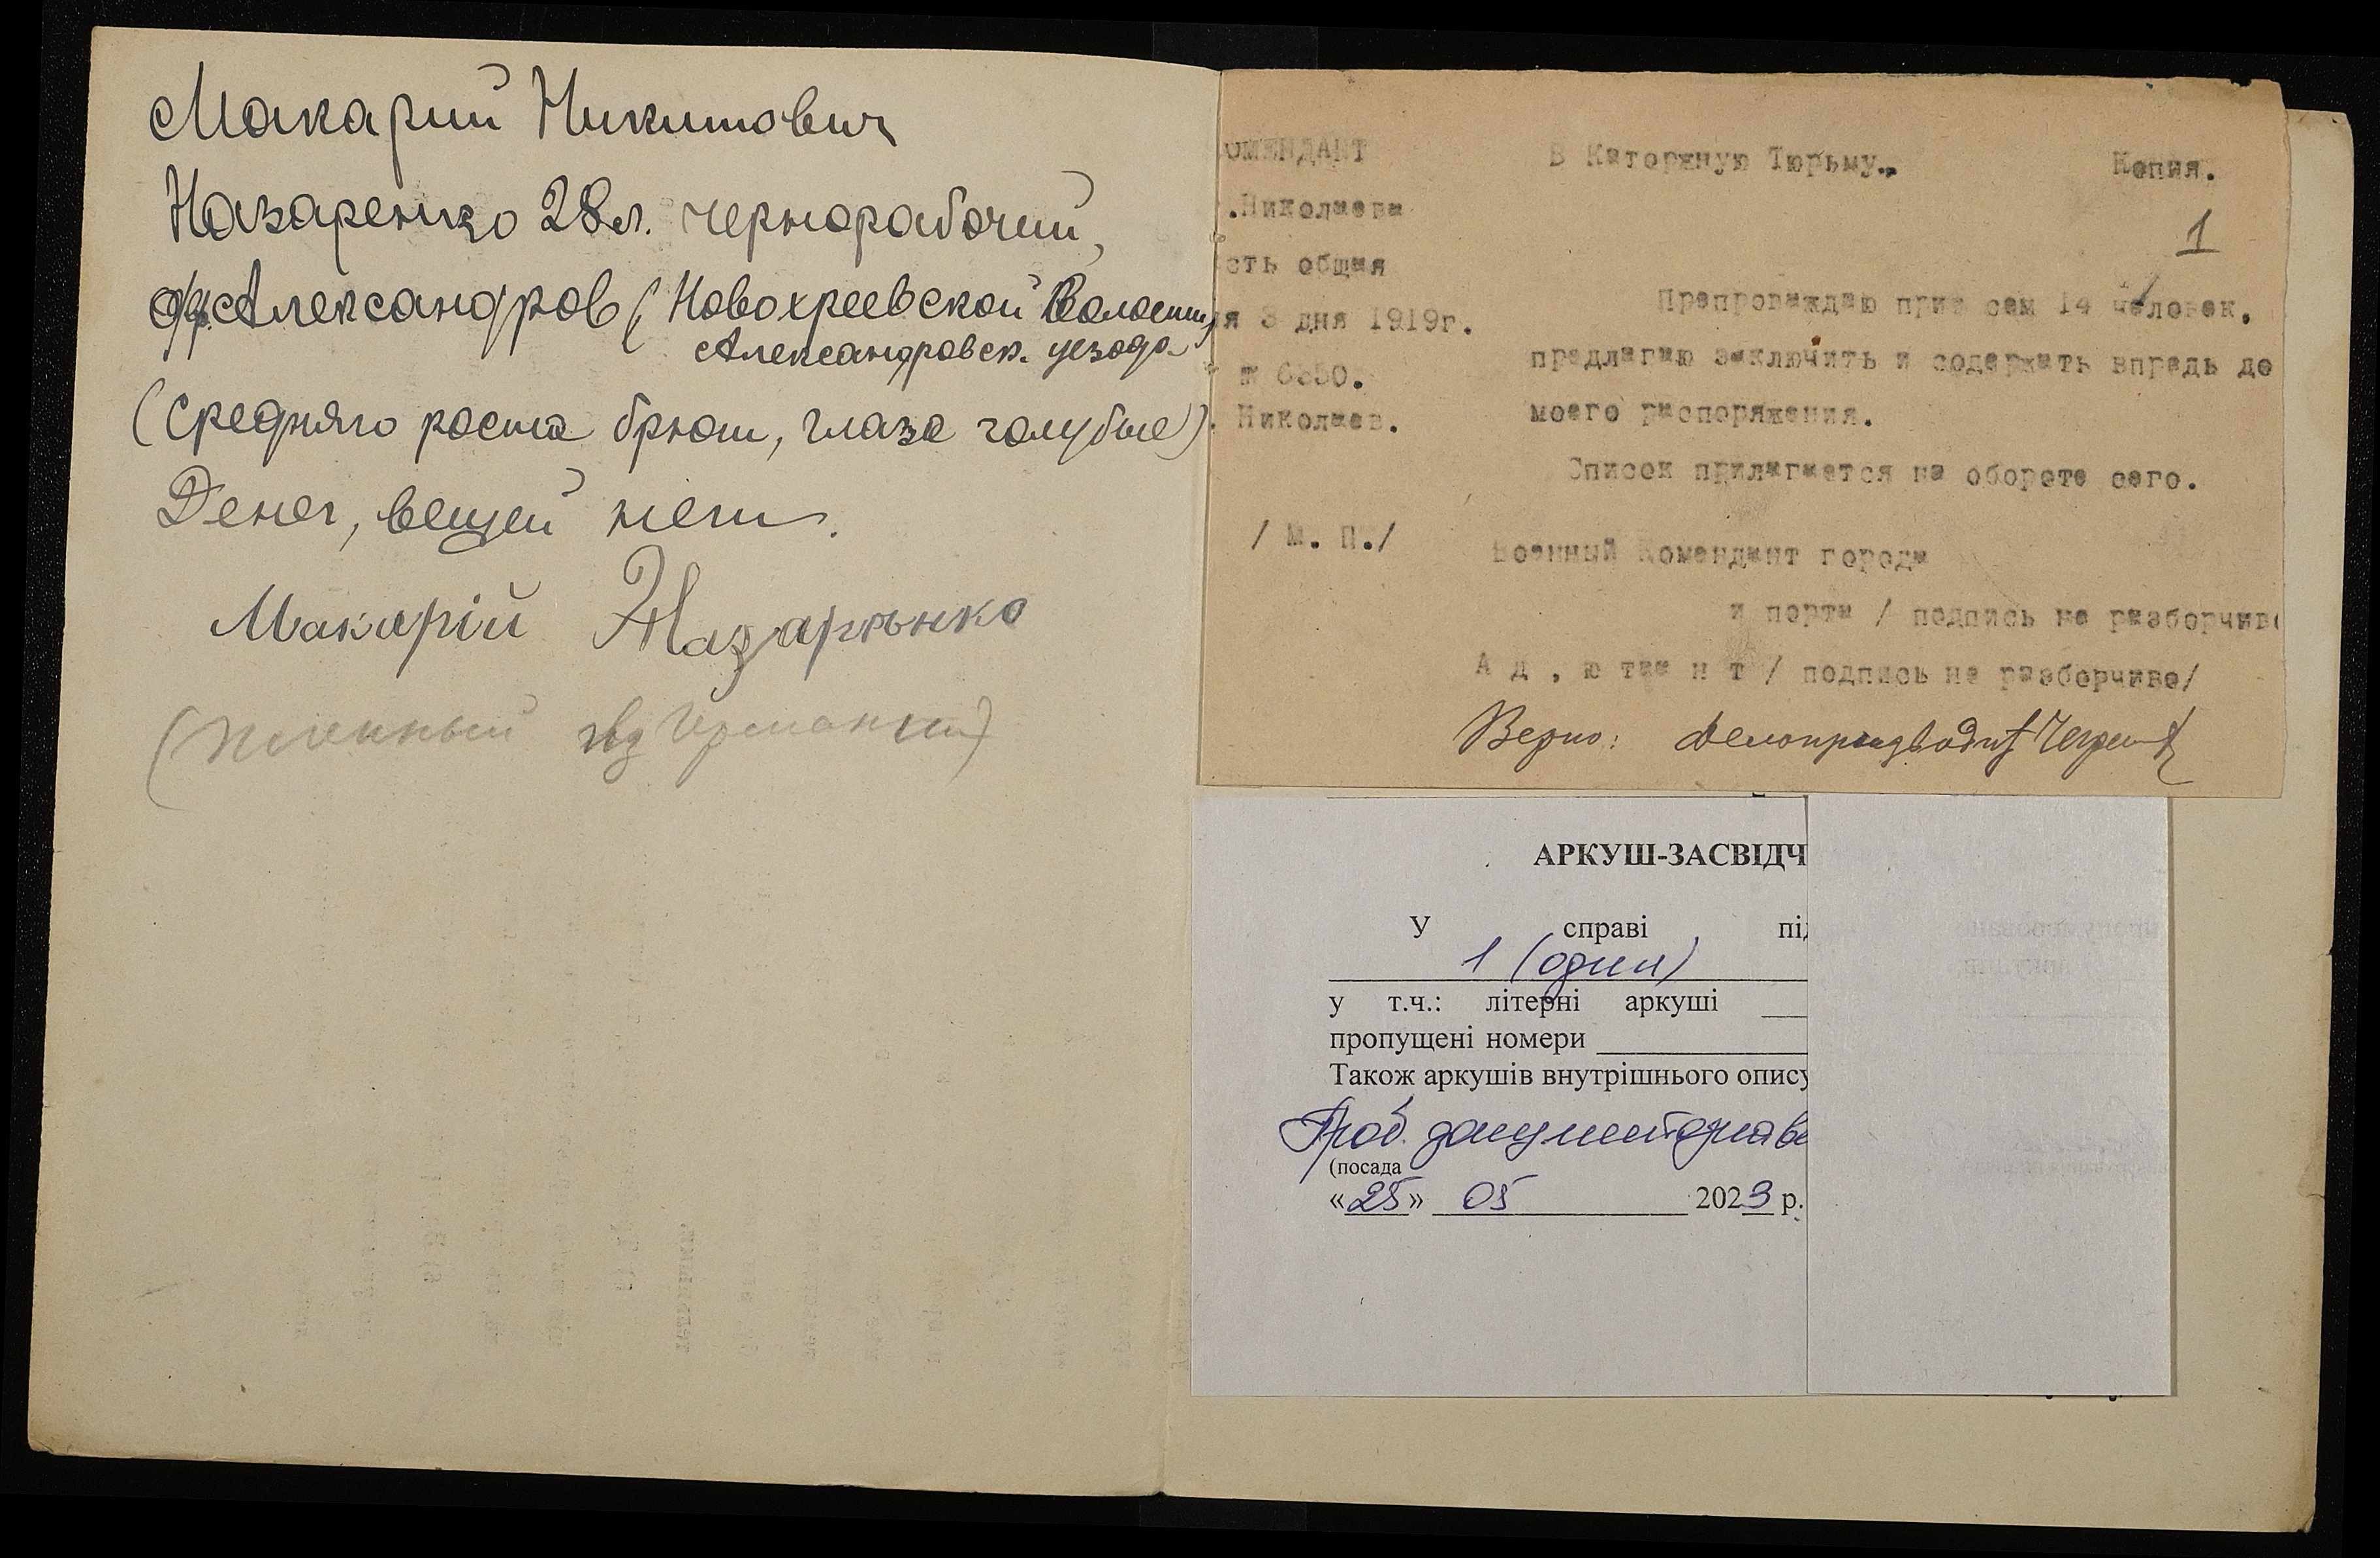 Макарий Никитович
Назаренко 28 л. чернорабочий,
Александров (Новохреевской Волости,
Александровск. уезда)
(Средняго роста брюн, глаза голубые)
Денег, вещей нет.
Макарій Назарѣнко
(пленный из Германии)
ОМЕНДАНТ
.Николаева
сть общая
я 3 дня 1919г.
№ 6350.
. Николаев.
/ М. П./
В Каторжную Тюрьму.
Копия.
1
Препровождаю при сем 14 человек,
предлагаю заключить и содержать впредь до
моего распоряжения.
Список прилагается на обороте сего.
Военный Комендант города
и порта / подпись не разборчиво
А д , ю т а н т / подпись не разборчиво/
Верно: Делопроизводит
АРКУШ-ЗАСВІДЧ
У справі під
1 (один)
у т.ч.: літерні аркуші
пропущені номери
Також аркушів внутрішнього опису
Пров. документознаве
(посада
«25» 05 2023 р.